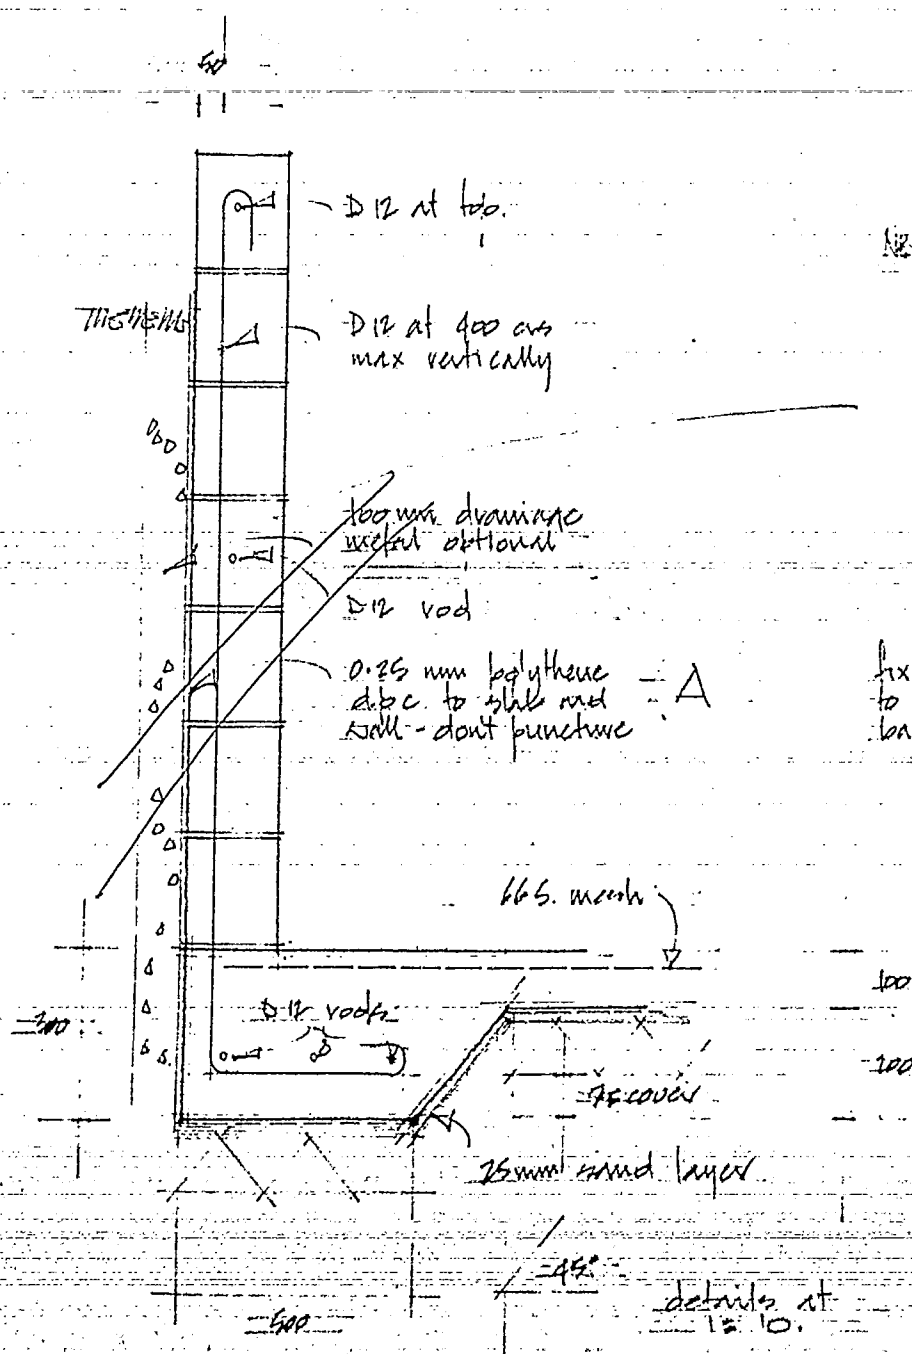 50
D12 at top.
D12 at 400 crs
max vertically
100mm drainage
metal optional
D12 rod
0.25 mm polythene
d.p.c. to slab and
wall - don't puncture
A
fix
to
ba
665. mesh
100
D12 rods
300
200
75 cover
25mm sand layer
45°
500
details at
1 = 10.